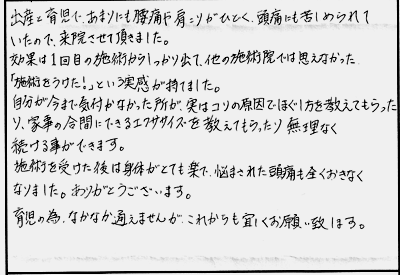 出産と育児で、あまりにも腰痛や肩こりがひどく、頭痛にも苦しめられて
いたので、来院させて頂きました。
効果は1回目の施術からしっかり出て、他の施術院では思えなかった
「施術をうけた!」という実感が持てました。
自分が今まで気付かなかった所が、実はコリの原因でほぐし方を教えてもらった
り、家事の合間にできるエクササイズを教えてもらったり無理なく
続ける事ができます。
施術を受けた後は身体がとても楽で、悩まされた頭痛も全くおきなく
なりました。ありがとうございます。
育児の為、なかなか通えませんが、これからも宜しくお願い致します。